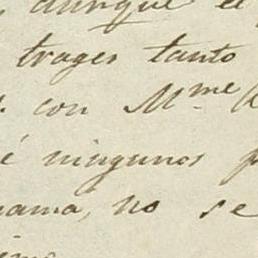 aunque e
trages tanto
con Mme
é ningunos p
ama, no se